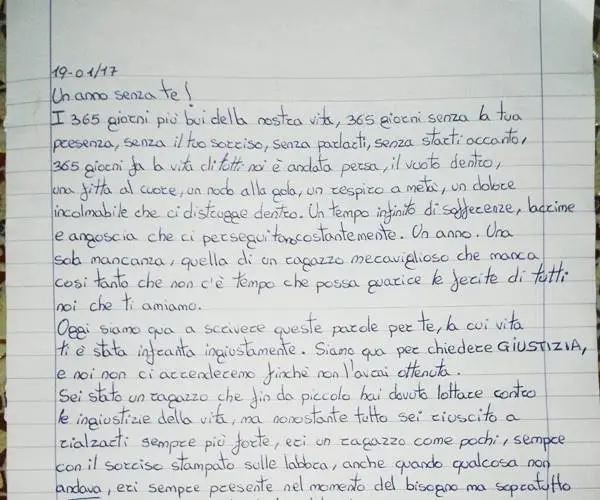 19-01/17
Un anno senza te!
I 365 giorni più bui della nostra vita, 365 giorni senza la tua
presenza, senza il tuo sorriso, senza parlarti, senza starti accanto,
365 giorni fa la vita di tutti noi è andata persa, il vuoto dentro,
una fitta al cuore, un nodo alla gola, un respiro a metà, un dolore
incolmabile che ci distrugge dentro. Un tempo infinito di sofferenze, lacrime
e angoscia che ci perseguitano costantemente. Un anno. Una
sola mancanza, quella di un ragazzo meraviglioso che manca
così tanto che non c'è tempo che possa guarire le ferite di tutti
noi che ti amiamo.
Oggi siamo qua a scrivere queste parole per te, la cui vita
ti è stata infranta ingiustamente. Siamo qua per chiedere GIUSTIZIA,
e noi non ci arrenderemo finchè non l'avrai ottenuta.
Sei stato un ragazzo che fin da piccolo hai dovuto lottare contro
le ingiustizie della vita, ma nonostante tutto sei riuscito a
rialzarti sempre più forte, eri un ragazzo come pochi, sempre
con il sorriso stampato sulle labbra, anche quando qualcosa non
andava, eri sempre presente nel momento del bisogno ma sopratutto